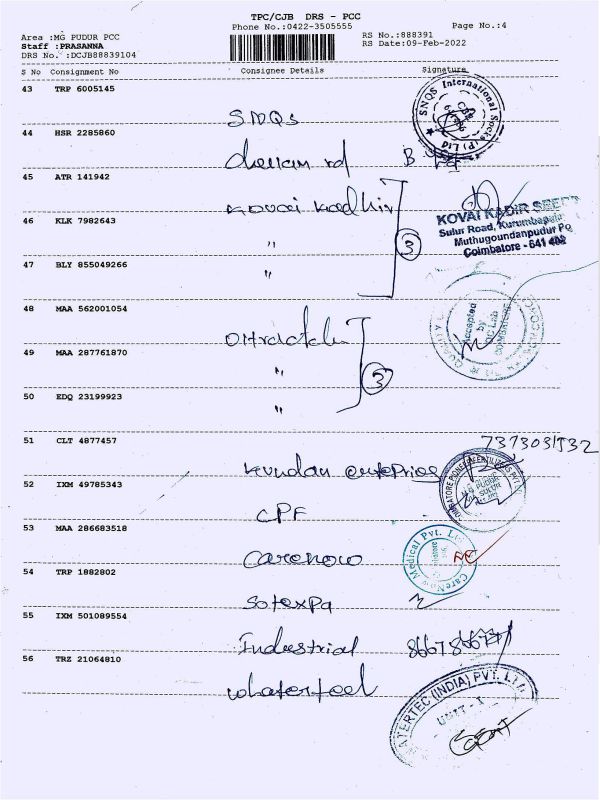 TPC/CJB DRS - PCC
Phone No.:0422-3505555
Page No.:4
Area :MG PUDUR PCC
RS No.:888391
Staff :PRASANNA
RS Date:09-Feb-2022
DRS No. :DCJB88839104
S No Consignment No Consignee Details Signature
43 TRP 6005145
SNQS
SNQS International Socks (P) Ltd
44 HSR 2285860
45 ATR 141942
Kovai Kadhir
KOVAI KADIR
Sulur Road, Kurumbapalayam
Muthugoundanpudur Po
Coimbatore - 641 402
46 KLK 7982643
"
3
47 BLY 855049266
"
48 MAA 562001054
Accepted
by
QC Lab
COIMBATORE
49 MAA 287761870
"
3
50 EDQ 23199923
"
51 CLT 4877457
Kundan enterprises
52 IXM 49785343
CPF
53 MAA 286683518
Carenow
CareNow Medical Pvt. Ltd
54 TRP 1882802
Sotexpa
55 IXM 501089554
Industrial
56 TRZ 21064810
WATERTEC (INDIA) PVT. LTD.
UNIT - I